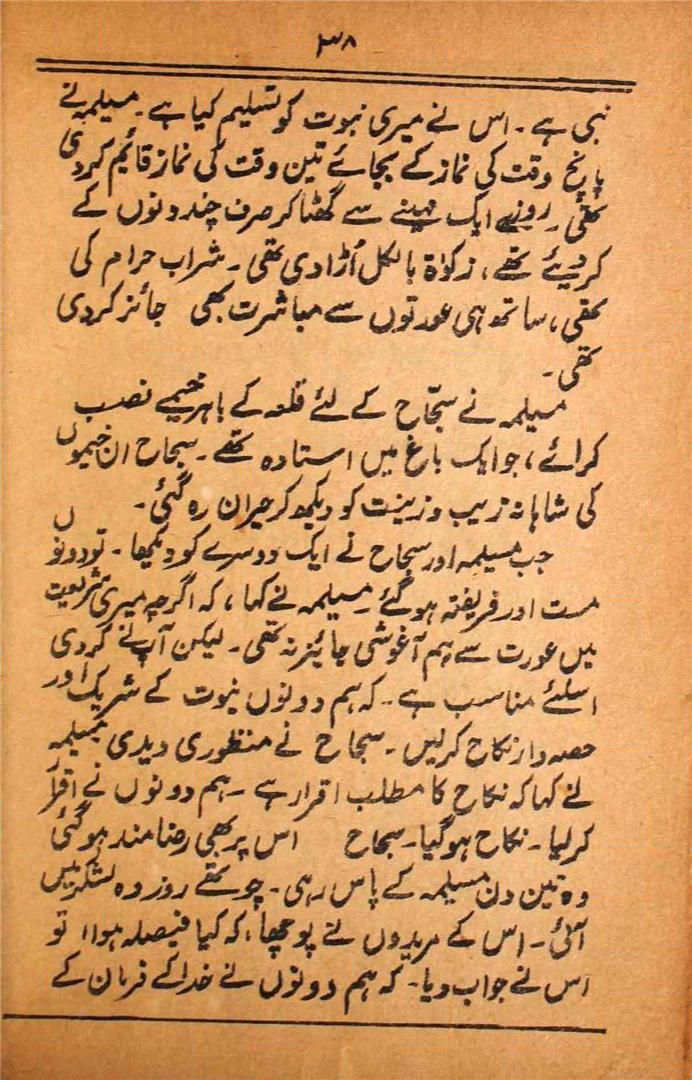 ۳۸
نبی ہے۔ اس نے میری نبوت کو تسلیم کیا ہے۔ مسیلمہ نے
پانچ وقت کی نماز کے بجائے تین وقت کی نماز قائیم کردی
تھی۔ روزے ایک مہینے سے گھٹا کر صرف چند دنوں کے
کر دیئے تھے، زکوٰة بالکل اُڑا دی تھی۔ شراب حرام کی
تھی، ساتھ ہی عورتوں سے مباشرت بھی جائز کردی
تھی۔
مسیلمہ نے سجّاح کے لئے قلعہ کے باہر خیمے نصب
کرائے، جو ایک باغ میں استادہ تھے۔ سجاح ان خیموں
کی شاہانہ زیب و زینت کو دیکھ کر حیران رہ گئی۔
جب مسیلمہ اور سجاح نے ایک دوسرے کو دیکھا۔ تو دونوں
مست اور فریفتہ ہو گئے۔ مسیلمہ نے کہا، کہ اگرچہ میری شریعت
میں عورت سے ہم آغوشی جائیز نہ تھی۔ لیکن آپ نے کردی
اسلئے مناسب ہے۔ کہ ہم دونوں نبوت کے شریک اور
حصہ دار نکاح کرلیں۔ سجاح نے منظوری دیدی مسیلمہ
نے کہا کہ نکاح کا مطلب اقرار ہے۔ ہم دونوں نے اقرار
کرلیا۔ نکاح ہوگیا۔ سجاح اس پر بھی رضا مند ہو گئی
وہ تین دن مسیلمہ کے پاس رہی۔ چوتھے روز وہ لشکر میں
آئی۔ اس کے مریدوں نے پوچھا، کہ کیا فیصلہ ہوا، تو
اس نے جواب دیا۔ کہ ہم دونوں نے خدا کے فرمان کے